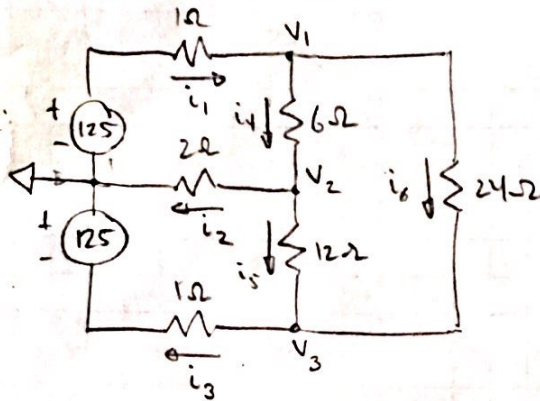 1Ω
V1
i1
+
125
-
i4
6Ω
2Ω
V2
i6
24Ω
i2
+
125
-
i5
12Ω
1Ω
V3
i3